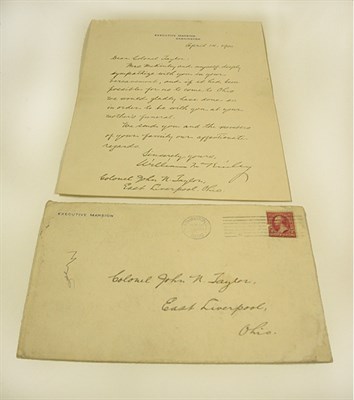 EXECUTIVE MANSION
WASHINGTON
April 10, 1901
Dear Colonel Taylor:
Mrs. McKinley and myself deeply
sympathize with you in your
bereavement, and if it had been
possible for us to come to Ohio
we would gladly have done so
in order to be with you at your
mother's funeral.
We send you and the members
of your family our affectionate
regards.
Sincerely yours,
William McKinley
Colonel John N. Taylor,
East Liverpool, Ohio.
EXECUTIVE MANSION
Colonel John N. Taylor,
East Liverpool,
Ohio.